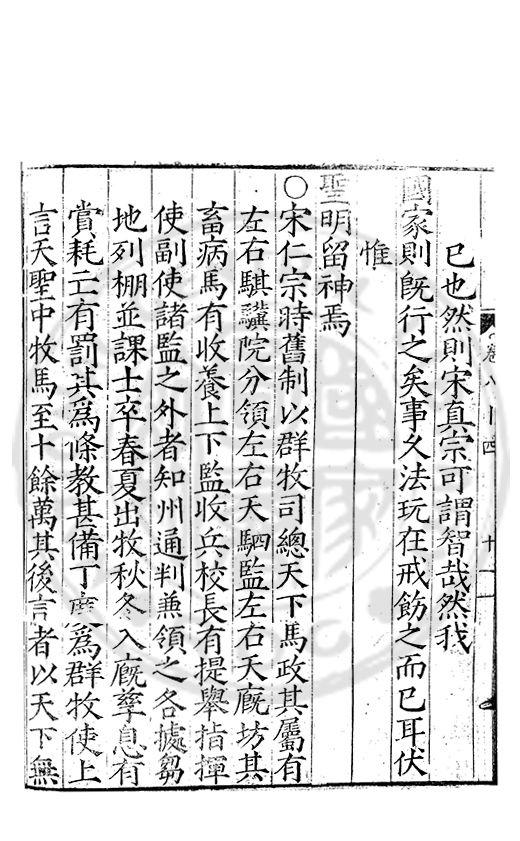 卷八十四
十一
已也然則宋真宗可謂智哉然我
國家則既行之矣事久法玩在戒飭之而已耳伏
惟
聖明留神焉
○宋仁宗時舊制以群牧司總天下馬政其屬有
左右騏驥院分領左右天駟監左右天廄坊其
畜病馬有收養上下監收兵校長有提舉指揮
使副使諸監之外者知州通判兼領之各據芻
地列棚並課士卒春夏出牧秋冬入廄孳息有
賞耗亡有罰其為條教甚備丁度為群牧使上
言天聖中牧馬至十餘萬其後言者以天下無